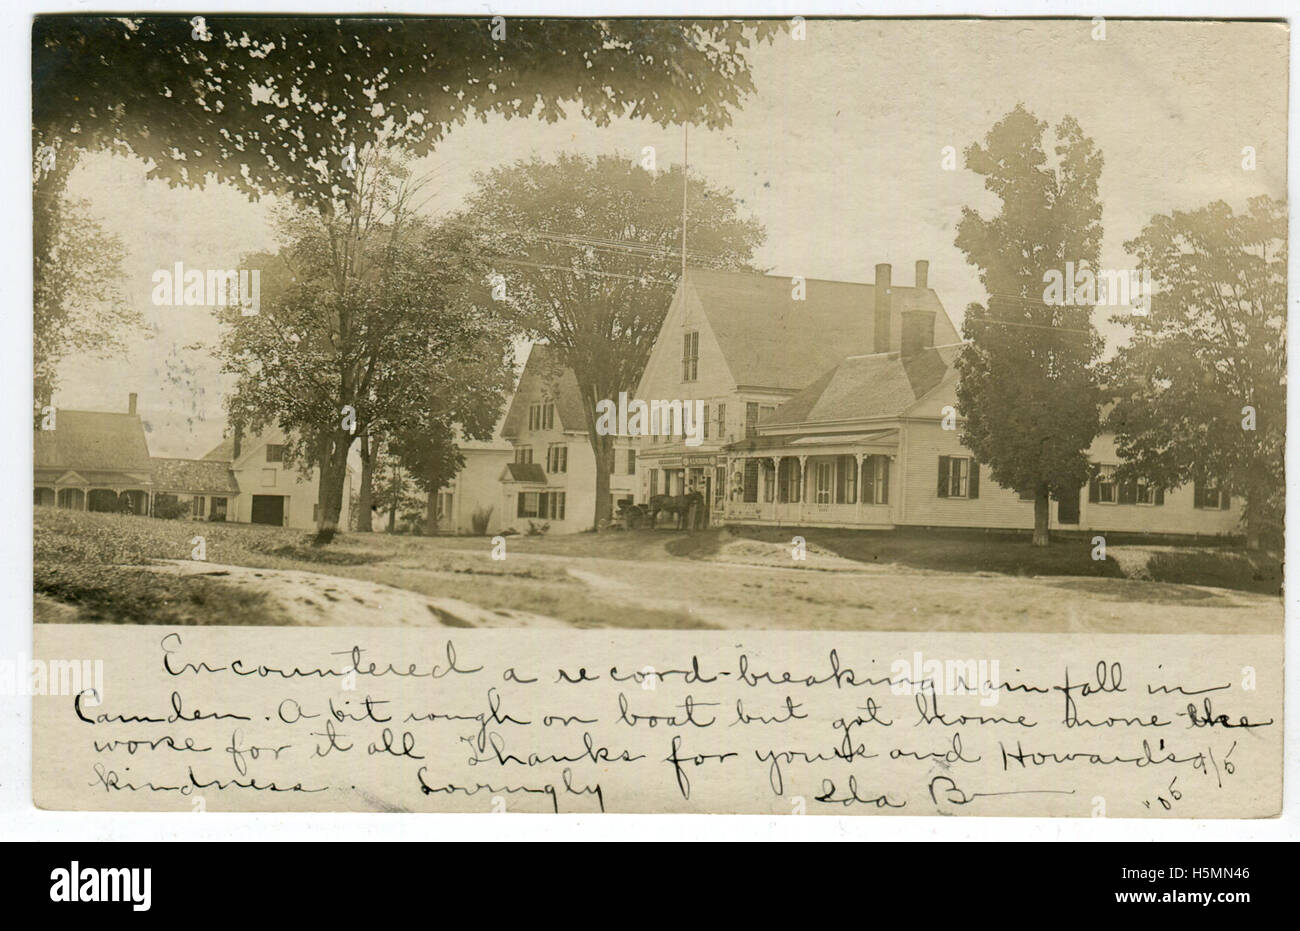 Encountered a record-breaking rainfall in
Camden. A bit rough on boat but got home none the
worse for it all Thanks for yours and Howard's
kindness. Lovingly Ida B 9/5
'05
alamy
a
alamy
Image ID: H5MN46
www.alamy.com